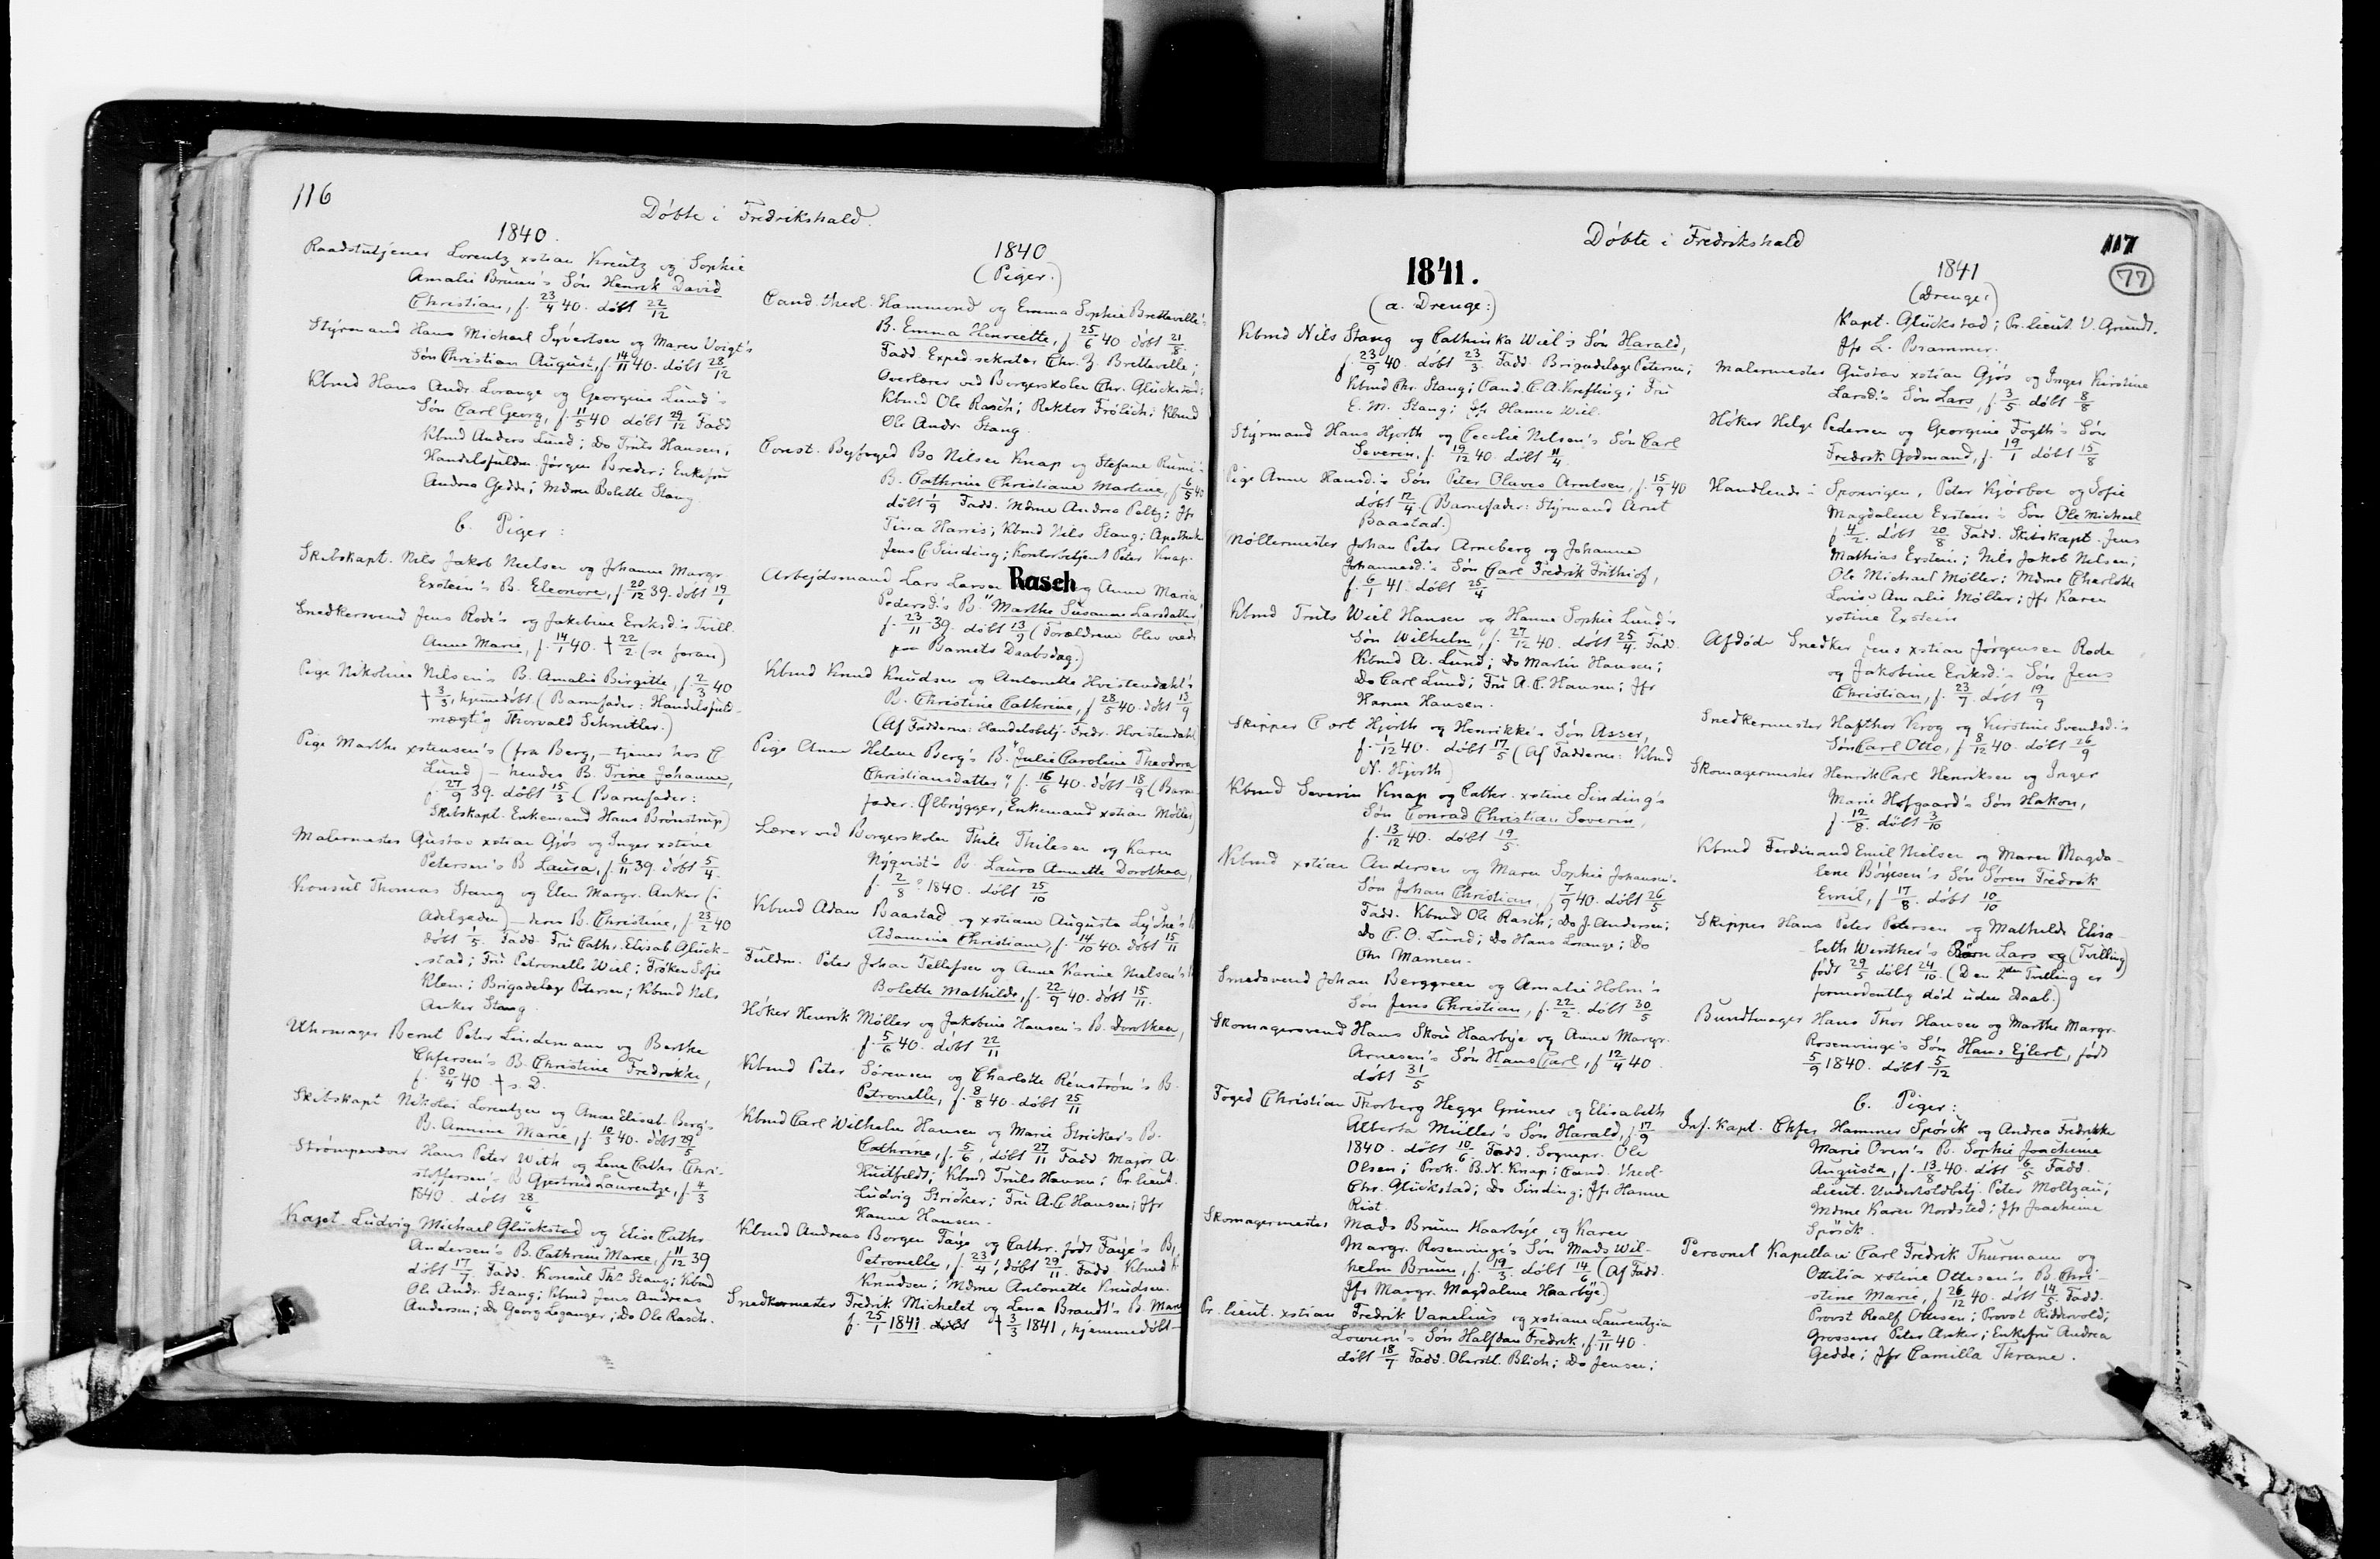 116
Döbte i Fredrikshald.
1840.
Raadstutjener Lorentz xstian Kreutz og Sophie
Amalie Bruun's Sön Henrik David
Christian, f. 23/4 40. döbt 22/12
Styrmand Hans Michael Syvertsen og Maren Voigt's
Sön Christian August, f. 14/11 40. döbt 28/12
Kbmd Hans Andr. Lorange og Georgine Lund's
Sön Carl Georg, f. 11/5 40 döbt 29/12 Fadd
Kbmd Anders Lund; Do Truls Hansen;
Handelsfuldm. Jörgen Breder; Enkefru
Andrea Gedde; Mdme Bolette Stang.
b. Piger:
Skibskapt. Nils Jakob Nielsen og Johanne Margr.
Exstein's B. Eleonore, f. 20/12 39. döbt 19/1
Snedkersvend Jens Rode's og Jakobine Eriksd.'s Tvill.
Anne Marie, f. 14/1 40. † 22/2. (se foran)
Pige Nikoline Nilsen's B. Amalie Birgitte, f. 2/3 40
† 3/3, hjemmedöbt. (Barnefader: Handelsfuld-
mægtig Thorvald Schnitler.)
Pige Marthe xstensen's (fra Berg, – tjener hos C
Lund) – hendes B. Trine Johanne,
f. 27/9 39. döbt 15/3 (Barnefader:
Skibskapt. Enkemand Hans Brönstrup)
Malermester Gustav xstian Gjös og Inger xstine
Petersen's B Laura, f. 6/11 39. döbt 5/4.
Konsul Thomas Stang og Elen Margr. Anker (i
Adelgaden) – deres B. Christine, f. 23/2 40
döbt 1/5. Fadd. Fru Cathr. Elisab Glück-
stad; Fru Petronelle Wiel; Fröken Sofie
Klem; Brigadelæge Petersen; Kbmd Nels
Anker Stang.
Uhrmager Bernt Peter Lindemann og Berthe
Chfersen's B. Christine Fredrikke,
f. 30/4 40 † s. D.
Skibskapt Nikolai Lorentzen og Anne Elisab. Berg's
B. Annine Marie, f. 10/3 40. döbt 29/5
Strömpevæver Hans Peter With og Lene Cathr. Chri-
stoffersen's B Gjertrud Laurentze, f. 4/3
1840. döbt 28/6
Kapt. Ludvig Michael Glückstad og Elise Cathr.
Andersen's B. Cathrine Marie, f. 11/12 39
döbt 17/7. Fadd. Konsul Ths Stang; Kbmd
Ole Andr. Stang; Kbmd Jens Andreas
Andersen; Do Georg Leganger; Do Ole Rasch.
1840
(Piger.)
Cand. theol. Hammond og Emma Sophie Bretteville's
B. Emma Henriette, f 25/6 40 döbt 21/8.
Fadd. Exped. sekretær Chr. Z. Bretteville;
Overlærer ved Borgerskolen Chr. Glückstad;
Kbmd Ole Rasch; Rektor Frölich; Kbmd
Ole Andr. Stang.
Const. Byfoged Bo Nilsen Knap og Stefane
B. Cathrine Christiane Martine, f 6/5 40
döbt 1/9 Fadd. Mdme Andrea Peltz; Jfr
Tina Harris; Kbmd Nels Stang; Apotheker
Jens C Sinding; Kontorbetjent Peter Knap.
Arbejdsmand Lars Larsen Rasch og Anne Maria
Pedersd.'s B. "Marthe Susanne Larsdatter"
f. 23/11 39. döbt 13/9 (Forældrene blev viede
paa Barnets Daabsdag.)
Kbmd Knud Knudsen og Antonette Hvistendahl's
B. Christine Cathrine, f 28/5 40. döbt 13/9
(Af Fadderne: Handelsbetj. Fredr. Hvistendahl
Pige Anne Helene Berg's B. "Julie Caroline Theodora
Christiansdatter", f. 16/6 40. döbt 18/9 (Barne-
fader: Ølbrygger, Enkemand xstian Möller)
Lærer ved Borgerskolen Thile Thilesen og Karen
Nyqvist's B. Laura Annette Dorothea,
f. 2/8? 1840. döbt 25/10
Kbmd Adam Baastad og xstiane Augusta Lyche's
Adamine Christiane, f. 14/10 40. döbt 15/11
Fuldm. Peter Johan Tellefsen og Anne Karine Nielsen's
Bolette Mathilde, f. 22/9 40. döbt 15/11.
Höker Henrik Möller og Jakobine Hansen's B. Dorothea,
f. 5/6 40. döbt 22/11
Kbmd Peter Sörensen og Charlotte Renström's B.
Petronelle, f. 8/8 40. döbt 25/11
Kbmd Carl Wilhelm Hansen og Marie Stricker's B.
Cathrine, f. 5/6, döbt 27/11 Fadd Major A.
Huitfeldt; Kbmd Truls Hansen; Pr. lieut.
Ludvig Stricker; Fru A.C Hansen; Jfr
Hanne Hansen.
Kbmd Andreas Borgen Faye og Cathr. födt Faye's B,
Petronelle, f. 23/4, döbt 29/11. Fadd. Kbmd K.
Knudsen; Mdme Antonette Knudsen.
Snedkermester Fredrik Michelet og Lena Brandt's B. Marie
f. 25/1 1841. † 3/3 1841, hjemmedöbt –
Döbte i Fredrikshald
117
77
1841.
(a. Drenge:)
Kbmd Nils Stang og Cathinka Wiel's Sön Harald,
f. 23/9 40. döbt 23/3 Fadd. Brigadelæge Petersen;
Kbmd Chr. Stang; Cand. C.A. Krefting; Fru
E. M. Stang; Jfr Hanna Wiel.
Styrmand Hans Hjorth og Cecilie Nilsen's Sön Carl
Severin, f. 19/12 40. döbt 11/4.
Pige Anne Hansd.'s Sön Peter Olaves Arntsen, f. 15/9 40
döbt 12/4 (Barnefader: Styrmand Arnt
Baastad.)
Möllermester Johan Peter Arneberg og Johanne
Johannesd.'s Sön Carl Fredrik Frithiof,
f. 6/1 41. döbt 25/4
Kbmd Truls Wiel Hansen og Hanne Sophie Lund's
Sön Wilhelm, f. 27/12 40. döbt 25/4. Fadd.
Kbmd A. Lund; Do Martin Hansen;
Do Carl Lund; Fru A.C. Hansen; Jfr
Hanne Hansen.
Skipper Cort Hjorth og Henrikke's Sön Asser,
f. 1/12 40. döbt 17/5 (Af Fadderne: Kbmd
N. Hjorth)
Kbmd Severin Knap og Cathr. xstine Sinding's
Sön Conrad Christian Severin,
f. 13/12 40. döbt 19/5.
Kbmd xstian Andersen og Maren Sophie Johansen's
Sön Johan Christian, f 7/9 40. döbt 26/5
Fadd. Kbmd Ole Rasch; Do J. Andersen;
Do C. O. Lund; Do Hans Lorange; Do
Chr Mamen.
Smedsvend Johan Berggreen og Amalie Holm's
Sön Jens Christian, f. 22/2. döbt 30/5
Skomagersvend Hans Skou Haarbye og Anne Margr.
Arnesen's Sön Hans Carl, f 12/4 40.
döbt 31/5
Foged Christian Thorberg Hegge Grüner og Elisabeth
Alberta Müller's Sön Harald, f 17/9
1840. döbt 10/6. Fadd. Sognepr. Ole
Olsen; Prok. B.N. Knap; Cand. theol.
Chr. Glückstad; Do Sinding; Jfr Hanne
Rist.
Skomagermester Mads Bruun Haarbye og Karen
Margr. Rosenvinge's Sön Mads Wil-
helm Bruun, f. 19/3. döbt 14/6 (Af Fadd.
Jfr Margr. Magdalene Haarbye)
Pr. lieut. xstian Fredrik Vanelius og xstiane Laurentzia
Lowum's Sön Halfdan Fredrik, f. 2/11 40.
döbt 18/7 Fadd. Oberstl. Blich; Do Jensen;
1841
(Drenge:)
Kapt. Glückstad; Pr. lieut. V. Grundt.
Jfr L. Brammer.
Malermester Gustav xstian Gjös og Inger Kirstine
Larsd.'s Sön Lars, f. 3/5. döbt 8/8
Höker Helge Pedersen og Georgine Fogth's Sön
Fredrik Godmand, f. 19/1 döbt 15/8
Handlende i Sponvigen, Peter Kjörboe og Sofie
Magdalene Exstein's Sön Ole Michael
f 4/2. döbt 20/8 Fadd. Skibskapt. Jens
Mathias Exstein; Nils Jakob Nilsen;
Ole Michael Möller; Mdme Charlotte
Lovise Amalie Möller; Jfr Karen
xstine Exstein
Afdöde Snedker Jens xstian Jörgensen Rode
og Jakobine Eriksd.'s Sön Jens
Christian, f. 23/7. döbt 19/9
Snedkermester Hafthor Krog og Kirstine Svendsd.'s
Sön Carl Otto, f 8/12 40. döbt 26/9
Skomagermester Henrik Carl Henriksen og Inger
Marie Hofgaard's Sön Hakon,
f. 12/8. döbt 3/10
Kbmd Ferdinand Emil Nielsen og Maren Magda-
lene Böyesen's Sön Sören Fredrik
Emil, f 17/8. döbt 10/10
Skipper Hans Peter Petersen og Mathilde Elisa-
beth Winther's Lars (Tvilling)
födt 29/5 döbt 24/10. (Den 2den Tvilling er
formodentlig död uden Daab.)
Bundtmager Hans Thor Hansen og Marthe Margr.
Rosenvinge's Sön Hans Ejlert, födt
5/9 1840. döbt 5/12
b. Piger:
Inf. Kapt. Chfer Hammer Spörck og Andrea Fredrikke
Marie Oven's B. Sophie Joachime
Augusta, f. 13/8 40. döbt 6/5 Fadd.
Lieut. Underholdbetj. Peter Moltzau;
Mdme Karen Nordsted; Jfr Joachime
Spörck.
Personel Kapellan Carl Fredrik Thurmann og
Ottilia xstine Ottesen's B. Chri-
stine Marie, f 26/12 40. döbt 14/5 Fadd.
Provst Realf Ottesen; Provst Riddervold;
Grosserer Peter Anker; Enkefru Andrea
Gedde; Jfr Camilla Thrane.